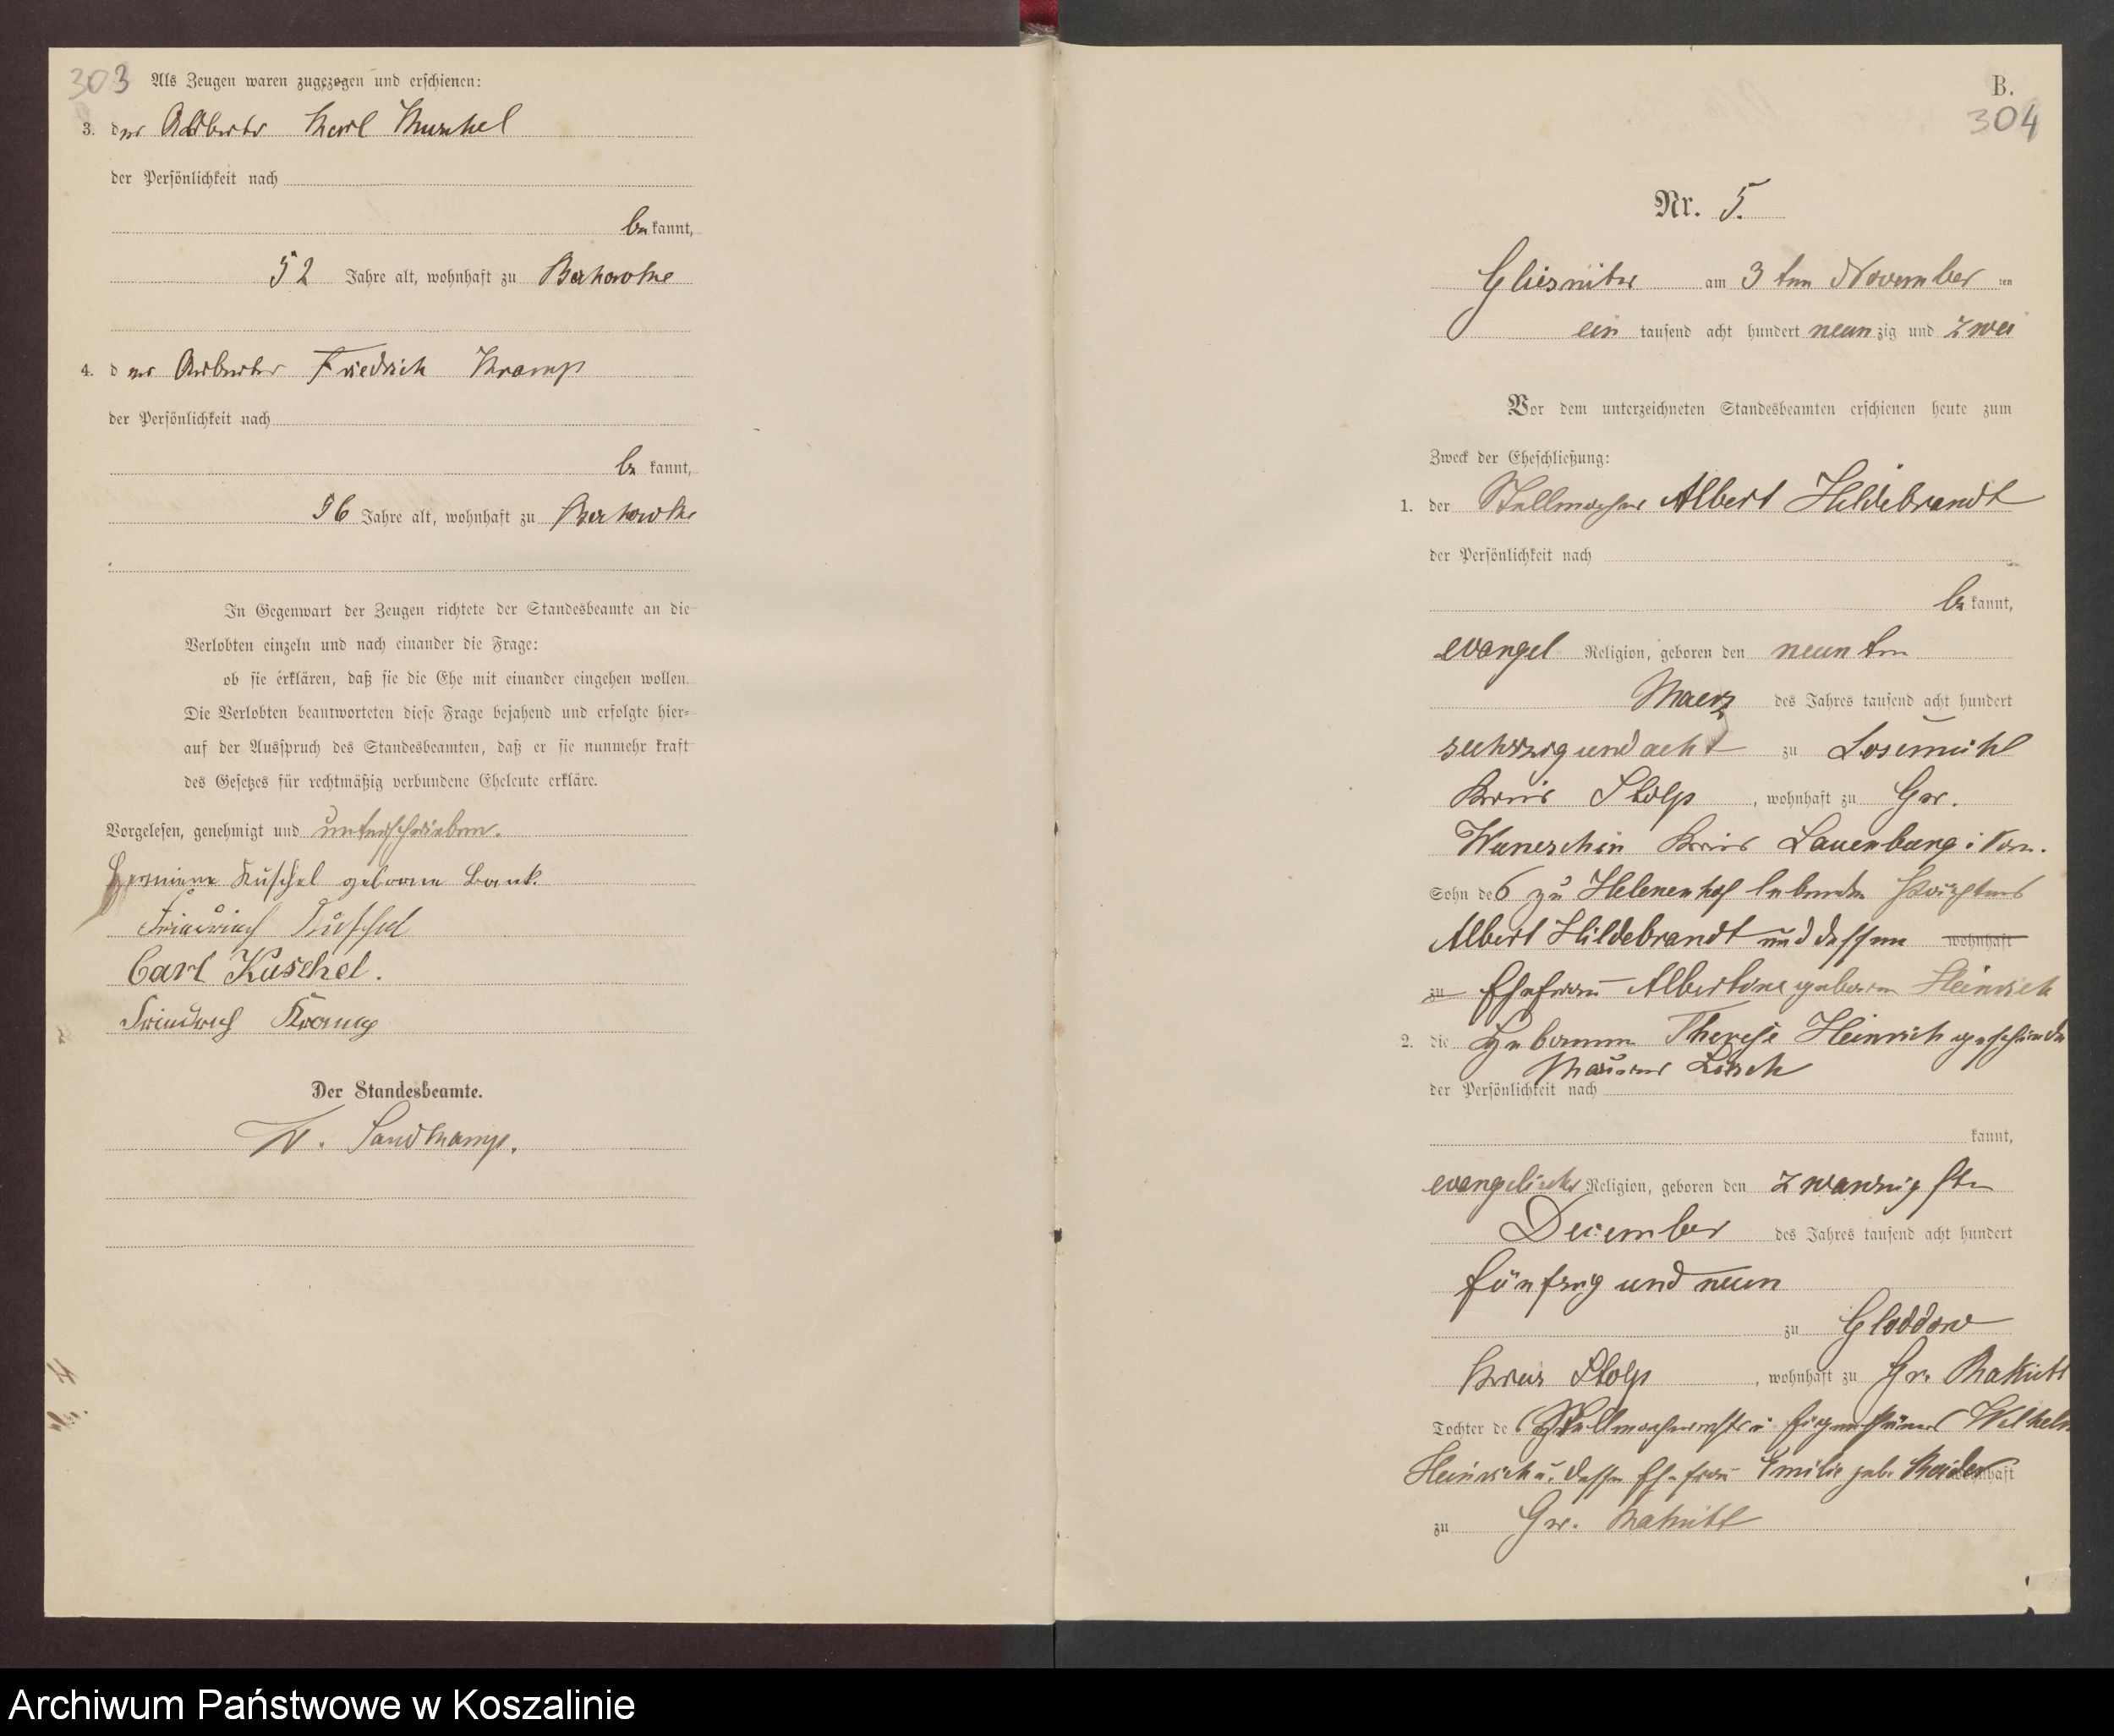 303
Als Zeugen waren zugezogen und erschienen:
3. der Arbeiter Karl Kuschel
der Persönlichkeit nach
be kannt,
52 Jahre alt, wohnhaft zu
4. der Arbeiter Friedrich Kramp
der Persönlichkeit nach
be kannt,
56 Jahre alt, wohnhaft zu
In Gegenwart der Zeugen richtete der Standesbeamte an die
Verlobten einzeln und nach einander die Frage:
ob sie erklären, daß sie die Ehe mit einander eingehen wollen.
Die Verlobten beantworteten diese Frage bejahend und erfolgte hier-
auf der Ausspruch des Standesbeamten, daß er sie nunmehr kraft
des Gesetzes für rechtmäßig verbundene Eheleute erkläre.
Vorgelesen, genehmigt und unterschrieben.
Hermine Kuschel geborene Bank.
Friedrich Kuschel
Carl Kuschel.
Friedrich Kramp
Der Standesbeamte.
Sandkamp.
B.
304
Nr. 5.
Gliesnitz am 3 ten November ten
ein tausend acht hundert neun zig und zwei
Vor dem unterzeichneten Standesbeamten erschienen heute zum
Zweck der Eheschließung:
1. der Stellmacher Albert Hildebrandt
der Persönlichkeit nach
be kannt,
evangel Religion, geboren den neun ten
Maerz des Jahres tausend acht hundert
sechszig und acht zu Losemühl
Kreis Stolp, wohnhaft zu Gr.
Wuneschin Kreis Lauenburg i Pom.
Sohn des zu Helenenhof lebenden
Albert Hildebrandt und dessen wohnhaft
zu Ehefrau Albertine geboren Heinrich
2. die Hebamme Therese Heinrich geschiedene
Maurer
der Persönlichkeit nach
kannt,
evangelischer Religion, geboren den zwanzigsten
December des Jahres tausend acht hundert
fünfzig und neun
zu Gloddow
Kreis Stolp, wohnhaft zu Gr. Rakitt
Tochter des Eigenthümers Wilhelm
Heinrich u. dessen Ehefrau Emilie geb. wohnhaft
zu Gr. Rakitt
Archiwum Państwowe w Koszalinie